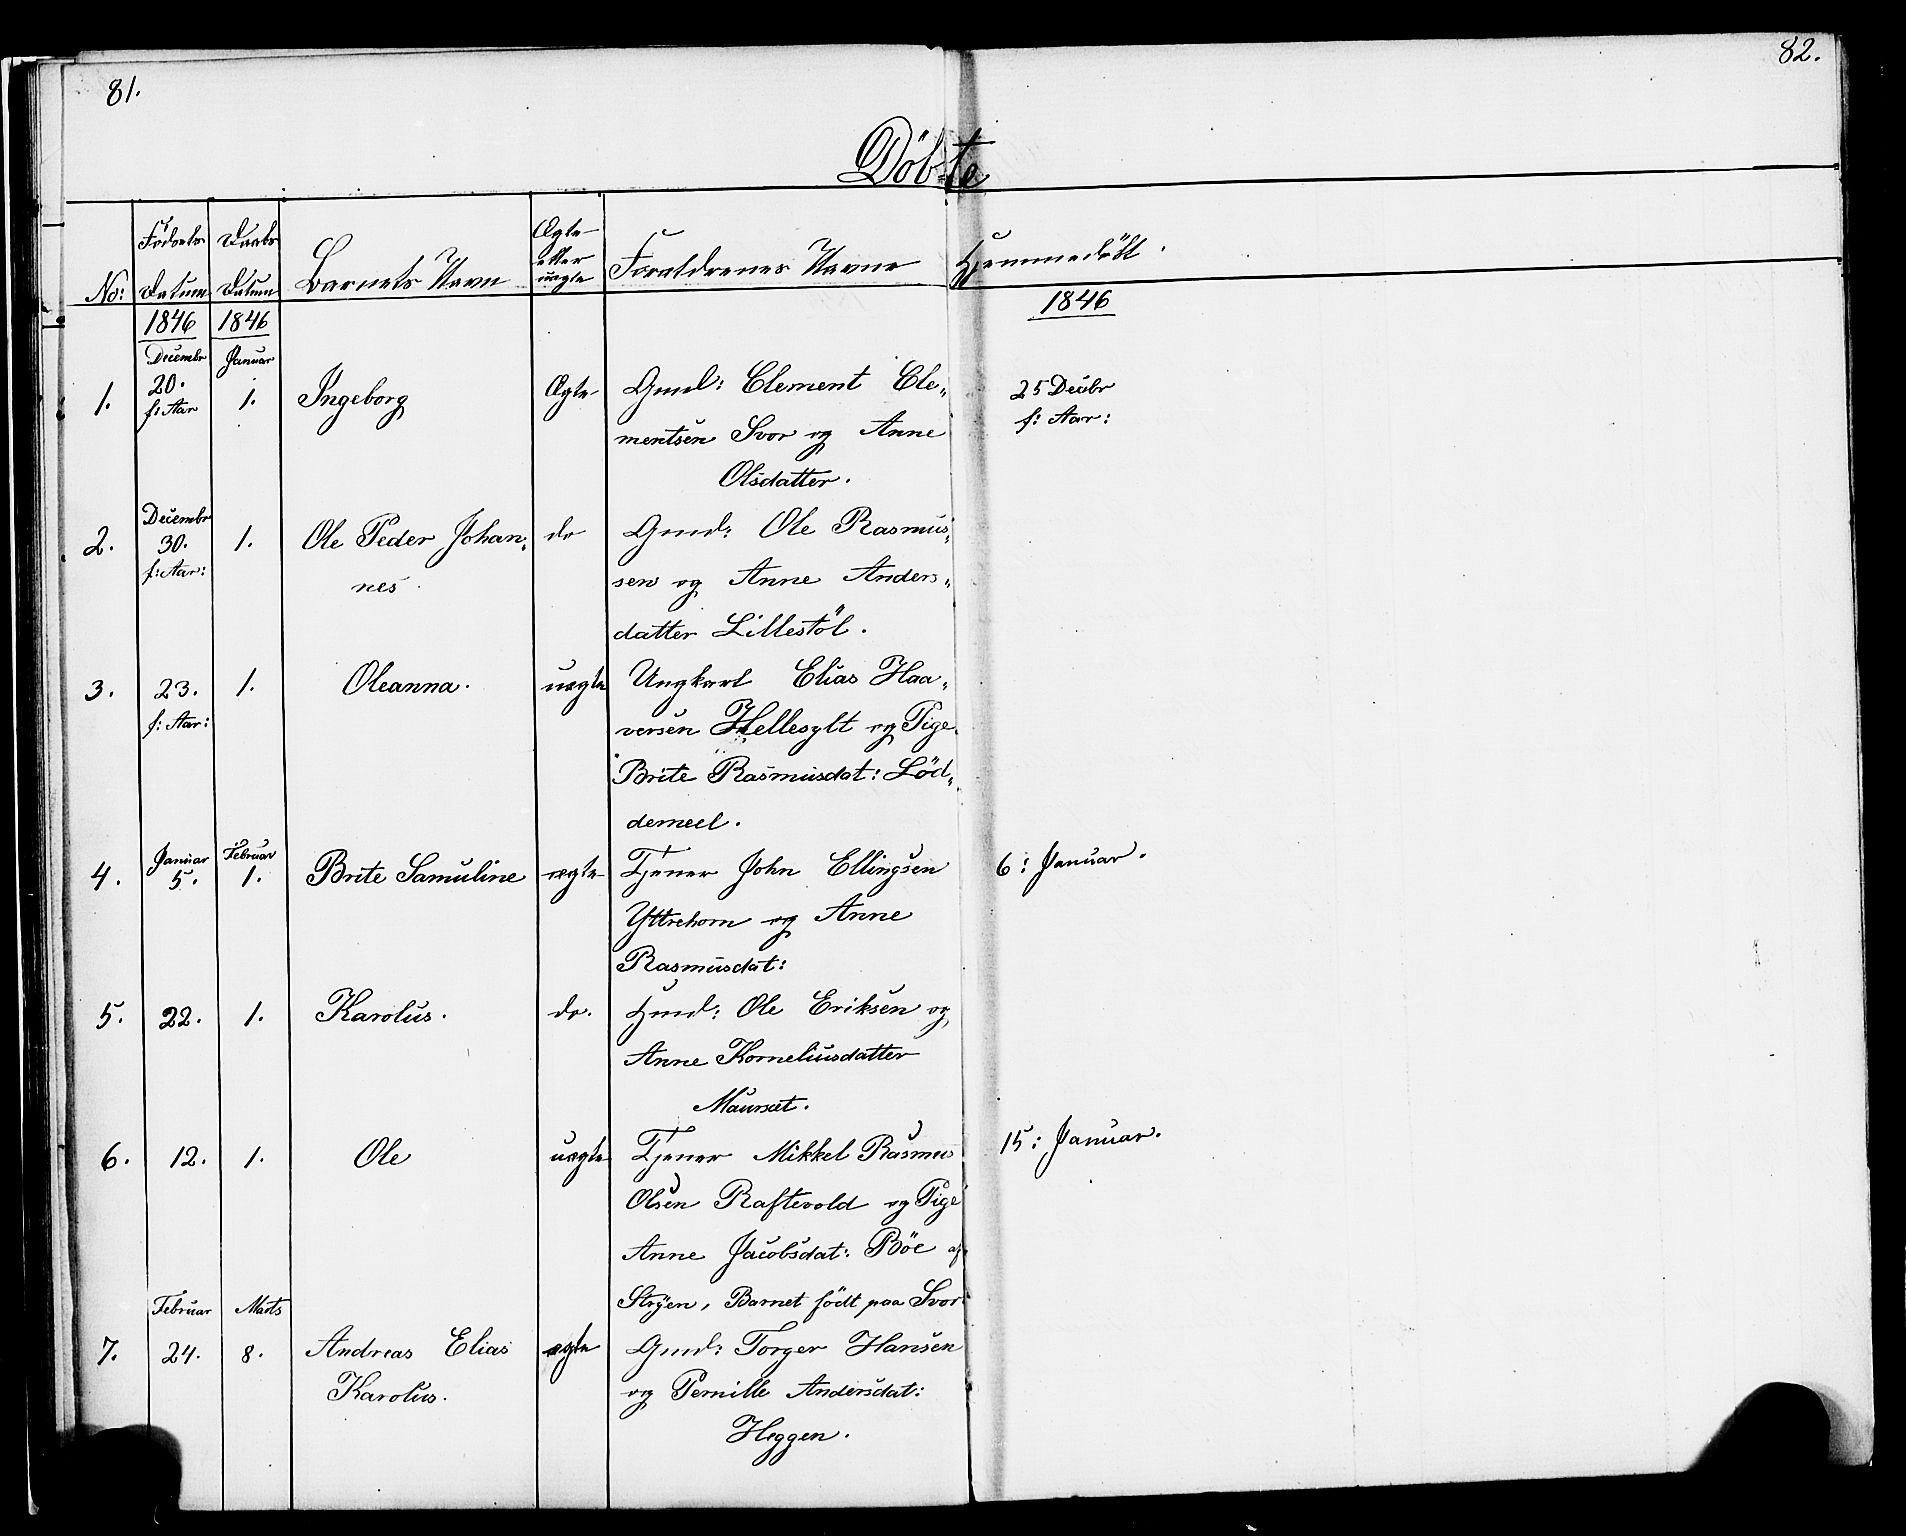 81.
82.
Döbte
No:
Födsels Datum
Daabs Datum
Barnets Navn
Ægte eller uægte
Forældrenes Navne
Hjemmedöbt.
1846
1846
1846
Decembr
Januar
1.
20.
f: Aar
1.
Ingeborg
Ægte
Gmd: Clement Cle„
mentsen Svor og Anne
Olsdatter.
25 Decbr
f: Aar:
Decembr
2.
30.
f: Aar:
1.
Ole Peder Johan„
nes
do
Gmd: Ole Rasmus„
sen og Anne Anders„
datter Lillestöl.
3.
23.
f: Aar:
1.
Oleanna.
uægte
Ungkarl Elias Haa„
versen Hellesylt og Pige
Brite Rasmusdat: Löd„
demeel.
Januar
Februar
4.
5.
1.
Brite Samuline
ægte
Tjener John Ellingsen
Yttrehorn og Anne
Rasmusdat:
6: Januar.
5.
22.
1.
Karolus.
do.
Hmd: Ole Eriksen og
Anne Korneliusdatter
Maurset.
6.
12.
1.
Ole
uægte
Tjener Mikkel Rasmus
Olsen Raftevold og Pige
Anne Jacobsdat: Böe af
Strÿen, Barnet födt paa Svor
15: Januar.
Februar
Marts
7.
24.
8.
Andreas Elias
Karolus.
ægte
Gmd: Torger Hansen
og Pernille Andersdat:
Heggen.